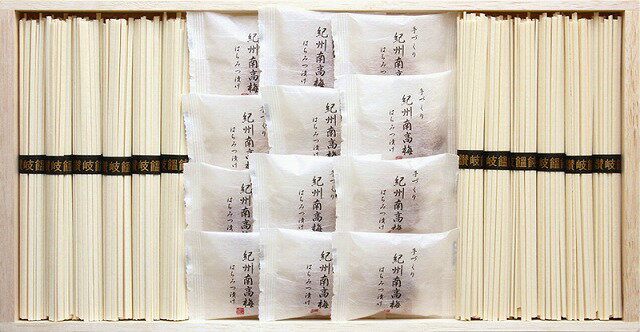 手づくり
紀州南高梅
はちみつ漬け
紀州南高梅
はちみつ漬け
手づくり
紀州南高梅
はちみつ漬け
手づくり
紀州南高梅
はちみつ漬け
紀州南高梅
はちみつ漬け
手づくり
紀州南高梅
はちみつ漬け
紀州南高梅
はちみつ漬け
紀州南高梅
はちみつ漬け
手づくり
紀州南高梅
はちみつ漬け
紀州南高梅
はちみつ漬け
紀州南高梅
はちみつ漬け
手づくり
紀州南高梅
はちみつ漬け
讃岐饂
讃岐
讃岐饂
讃岐饂
讃岐
讃岐饂
讃岐饂
讃岐